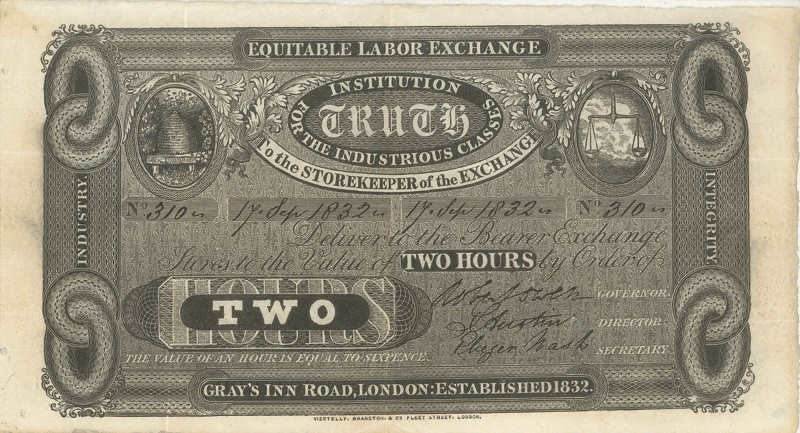 EQUITABLE LABOR EXCHANGE
INSTITUTION
TRUTH
FOR THE INDUSTRIOUS CLASSES
To the STOREKEEPER of the EXCHANGE
INDUSTRY
INTEGRITY
No 310 17 Sep 1832 17 Sep 1832 No 310
Deliver to the Bearer Exchange
Stores to the Value of TWO HOURS by Order of
HOURS
TWO
Robt Owen GOVERNOR.
S Austin DIRECTOR.
Ebezer Nash SECRETARY.
THE VALUE OF AN HOUR IS EQUAL TO SIXPENCE.
GRAY'S INN ROAD, LONDON: ESTABLISHED 1832.
VIZETELLY, BRANSTON, & CO FLEET STREET, LONDON.